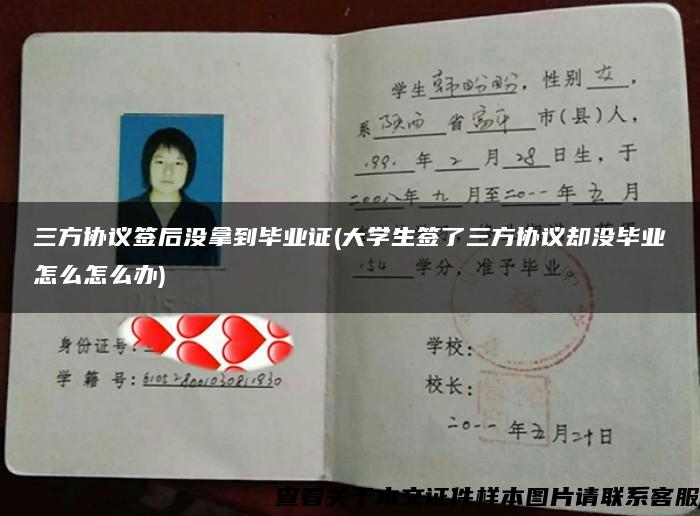 学生韩盼盼，性别女，
系陕西省富平市(县)人，
1991年2月28日生，于
二00八年九月至二0一一年五月
三方协议签后没拿到毕业证(大学生签了三方协议却没毕业
怎么怎么办)
154学分，准予毕业。
身份证号：
学籍号：
学校：
校长：
二0一一年五月二十日
查看关于本文证件样本图片请联系客服